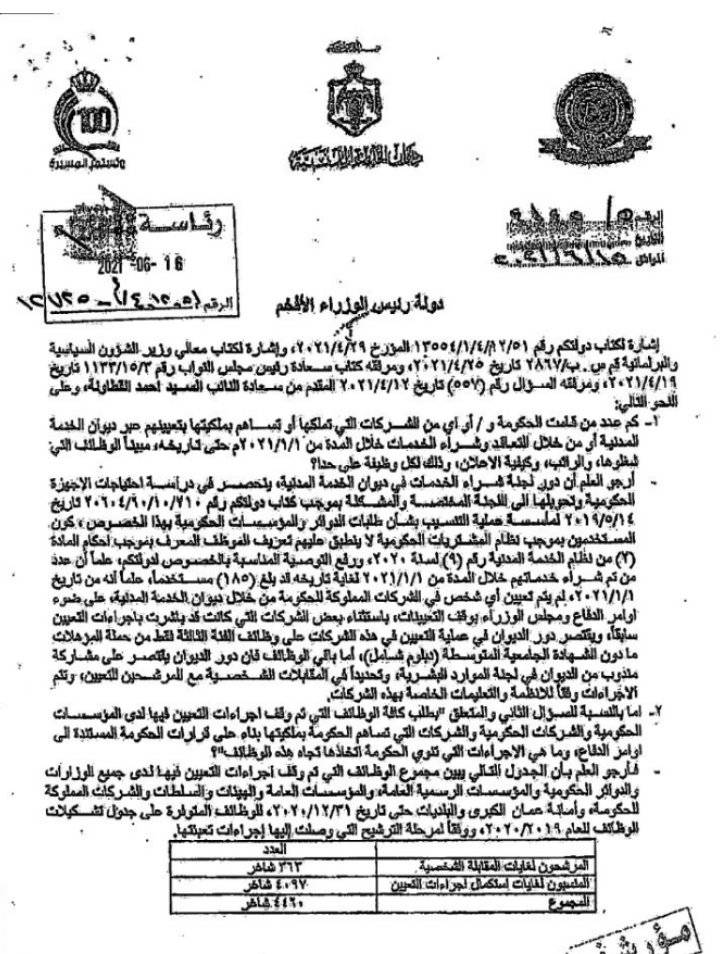 100
وتستمر المسيرة
ديوان الخدمة المدنية
الرقم
التاريخ
الموافق ٢٠٢١/٦/١٥
رئاسة
2021 -06- 16
الرقم
دولة رئيس الوزراء الأفخم
إشارة لكتاب دولتكم رقم ١٣٥٥٤/١/٤/١٢/٥١ المؤرخ ٢٠٢١/٤/٢٩، وإشارة لكتاب معالي وزير الشؤون السياسية
والبرلمانية رقم س. ب/٢٨٦٧ تاريخ ٢٠٢١/٤/٢٥، ومرفقه كتاب سعادة رئيس مجلس النواب رقم ١١٣٣/١٥/٣ تاريخ
٢٠٢١/٤/١٩، ومرفقه السؤال رقم (٥٥٧) تاريخ ٢٠٢١/٤/١٢ المقدم من سعادة النائب السيد احمد القطاونة، وعلى
النحو التالي:
١- كم عدد من قامت الحكومة و / أو اي من الشركات التي تملكها أو تساهم بملكيتها بتعيينهم عبر ديوان الخدمة
المدنية أو من خلال التعاقد وشراء الخدمات خلال المدة من ٢٠٢١/١/١م حتى تاريخه، مبيناً الوظائف التي
شغلوها، والراتب، وكيفية الاعلان، وذلك لكل وظيفة على حدا؟
- أرجو العلم أن دور لجنة شراء الخدمات في ديوان الخدمة المدنية، ينحصر في دراسة احتياجات الاجهزة
الحكومية وتحويلها الى اللجنة المختصة والمشكلة بموجب كتاب دولتكم رقم ٢٠٦٠٤/٦٠/١٠/٧١٠ تاريخ
٢٠١٩/٥/١٤ لمأسسة عملية التنسيب بشأن طلبات الدوائر والمؤسسات الحكومية بهذا الخصوص، كون
المستخدمين بموجب نظام المشتريات الحكومية لا ينطبق عليهم تعريف الموظف المعرف بموجب احكام المادة
(٢) من نظام الخدمة المدنية رقم (٩) لسنة ٢٠٢٠، ورفع التوصية المناسبة بالخصوص لدولتكم، علماً أن عدد
من تم شراء خدماتهم خلال المدة من ٢٠٢١/١/١ لغاية تاريخه قد بلغ (١٨٥) مستخدماً، علماً أنه من تاريخ
٢٠٢١/١/١، لم يتم تعيين أي شخص في الشركات المملوكة للحكومة من خلال ديوان الخدمة المدنية، على ضوء
اوامر الدفاع ومجلس الوزراء بوقف التعيينات، باستثناء بعض الشركات التي كانت قد باشرت باجراءات التعيين
سابقاً، ويقتصر دور الديوان في عملية التعيين في هذه الشركات على وظائف الفئة الثالثة فقط من حملة المؤهلات
ما دون الشهادة الجامعية المتوسطة (دبلوم شامل)، أما باقي الوظائف فان دور الديوان يقتصر على مشاركة
مندوب من الديوان في لجنة الموارد البشرية، وتحديداً في المقابلات الشخصية مع المرشحين للتعيين، وتتم
الاجراءات وفقاً للانظمة والتعليمات الخاصة بهذه الشركات.
٢- اما بالنسبة للسؤال الثاني والمتعلق "بطلب كافة الوظائف التي تم وقف اجراءات التعيين فيها لدى المؤسسات
الحكومية والشركات الحكومية والشركات التي تساهم الحكومة بملكيتها بناء على قرارات الحكومة المستندة الى
اوامر الدفاع، وما هي الاجراءات التي تنوي الحكومة اتخاذها تجاه هذه الوظائف"؟
- فأرجو العلم بأن الجدول التالي يبين مجموع الوظائف التي تم وقف اجراءات التعيين فيها لدى جميع الوزارات
والدوائر الحكومية والمؤسسات الرسمية العامة، والمؤسسات العامة والهيئات والسلطات والشركات المملوكة
للحكومة، وأمانة عمان الكبرى والبلديات حتى تاريخ ٢٠٢٠/١٢/٣١، للوظائف المتوفرة على جدول تشكيلات
الوظائف للعام ٢٠٢٠/٢٠١٩، ووفقاً لمرحلة الترشيح التي وصلت إليها إجراءات تعبئتها.
العدد
المرشحون لغايات المقابلة الشخصية ٣٦٣ شاغر
المنسبون لغايات استكمال اجراءات التعيين ٤٠٩٧ شاغر
المجموع ٤٤٦٠ شاغر